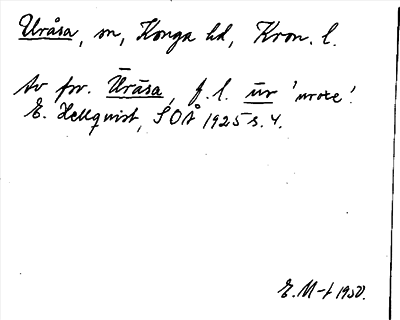 Uråsa, sn, Konga hd, Kron. l.
Av fvn. Ūrāsa, f. l. ūr 'uroxe'.
E. Hellquist, SOÅ 1925 s. 4.
E. M-t 1950.